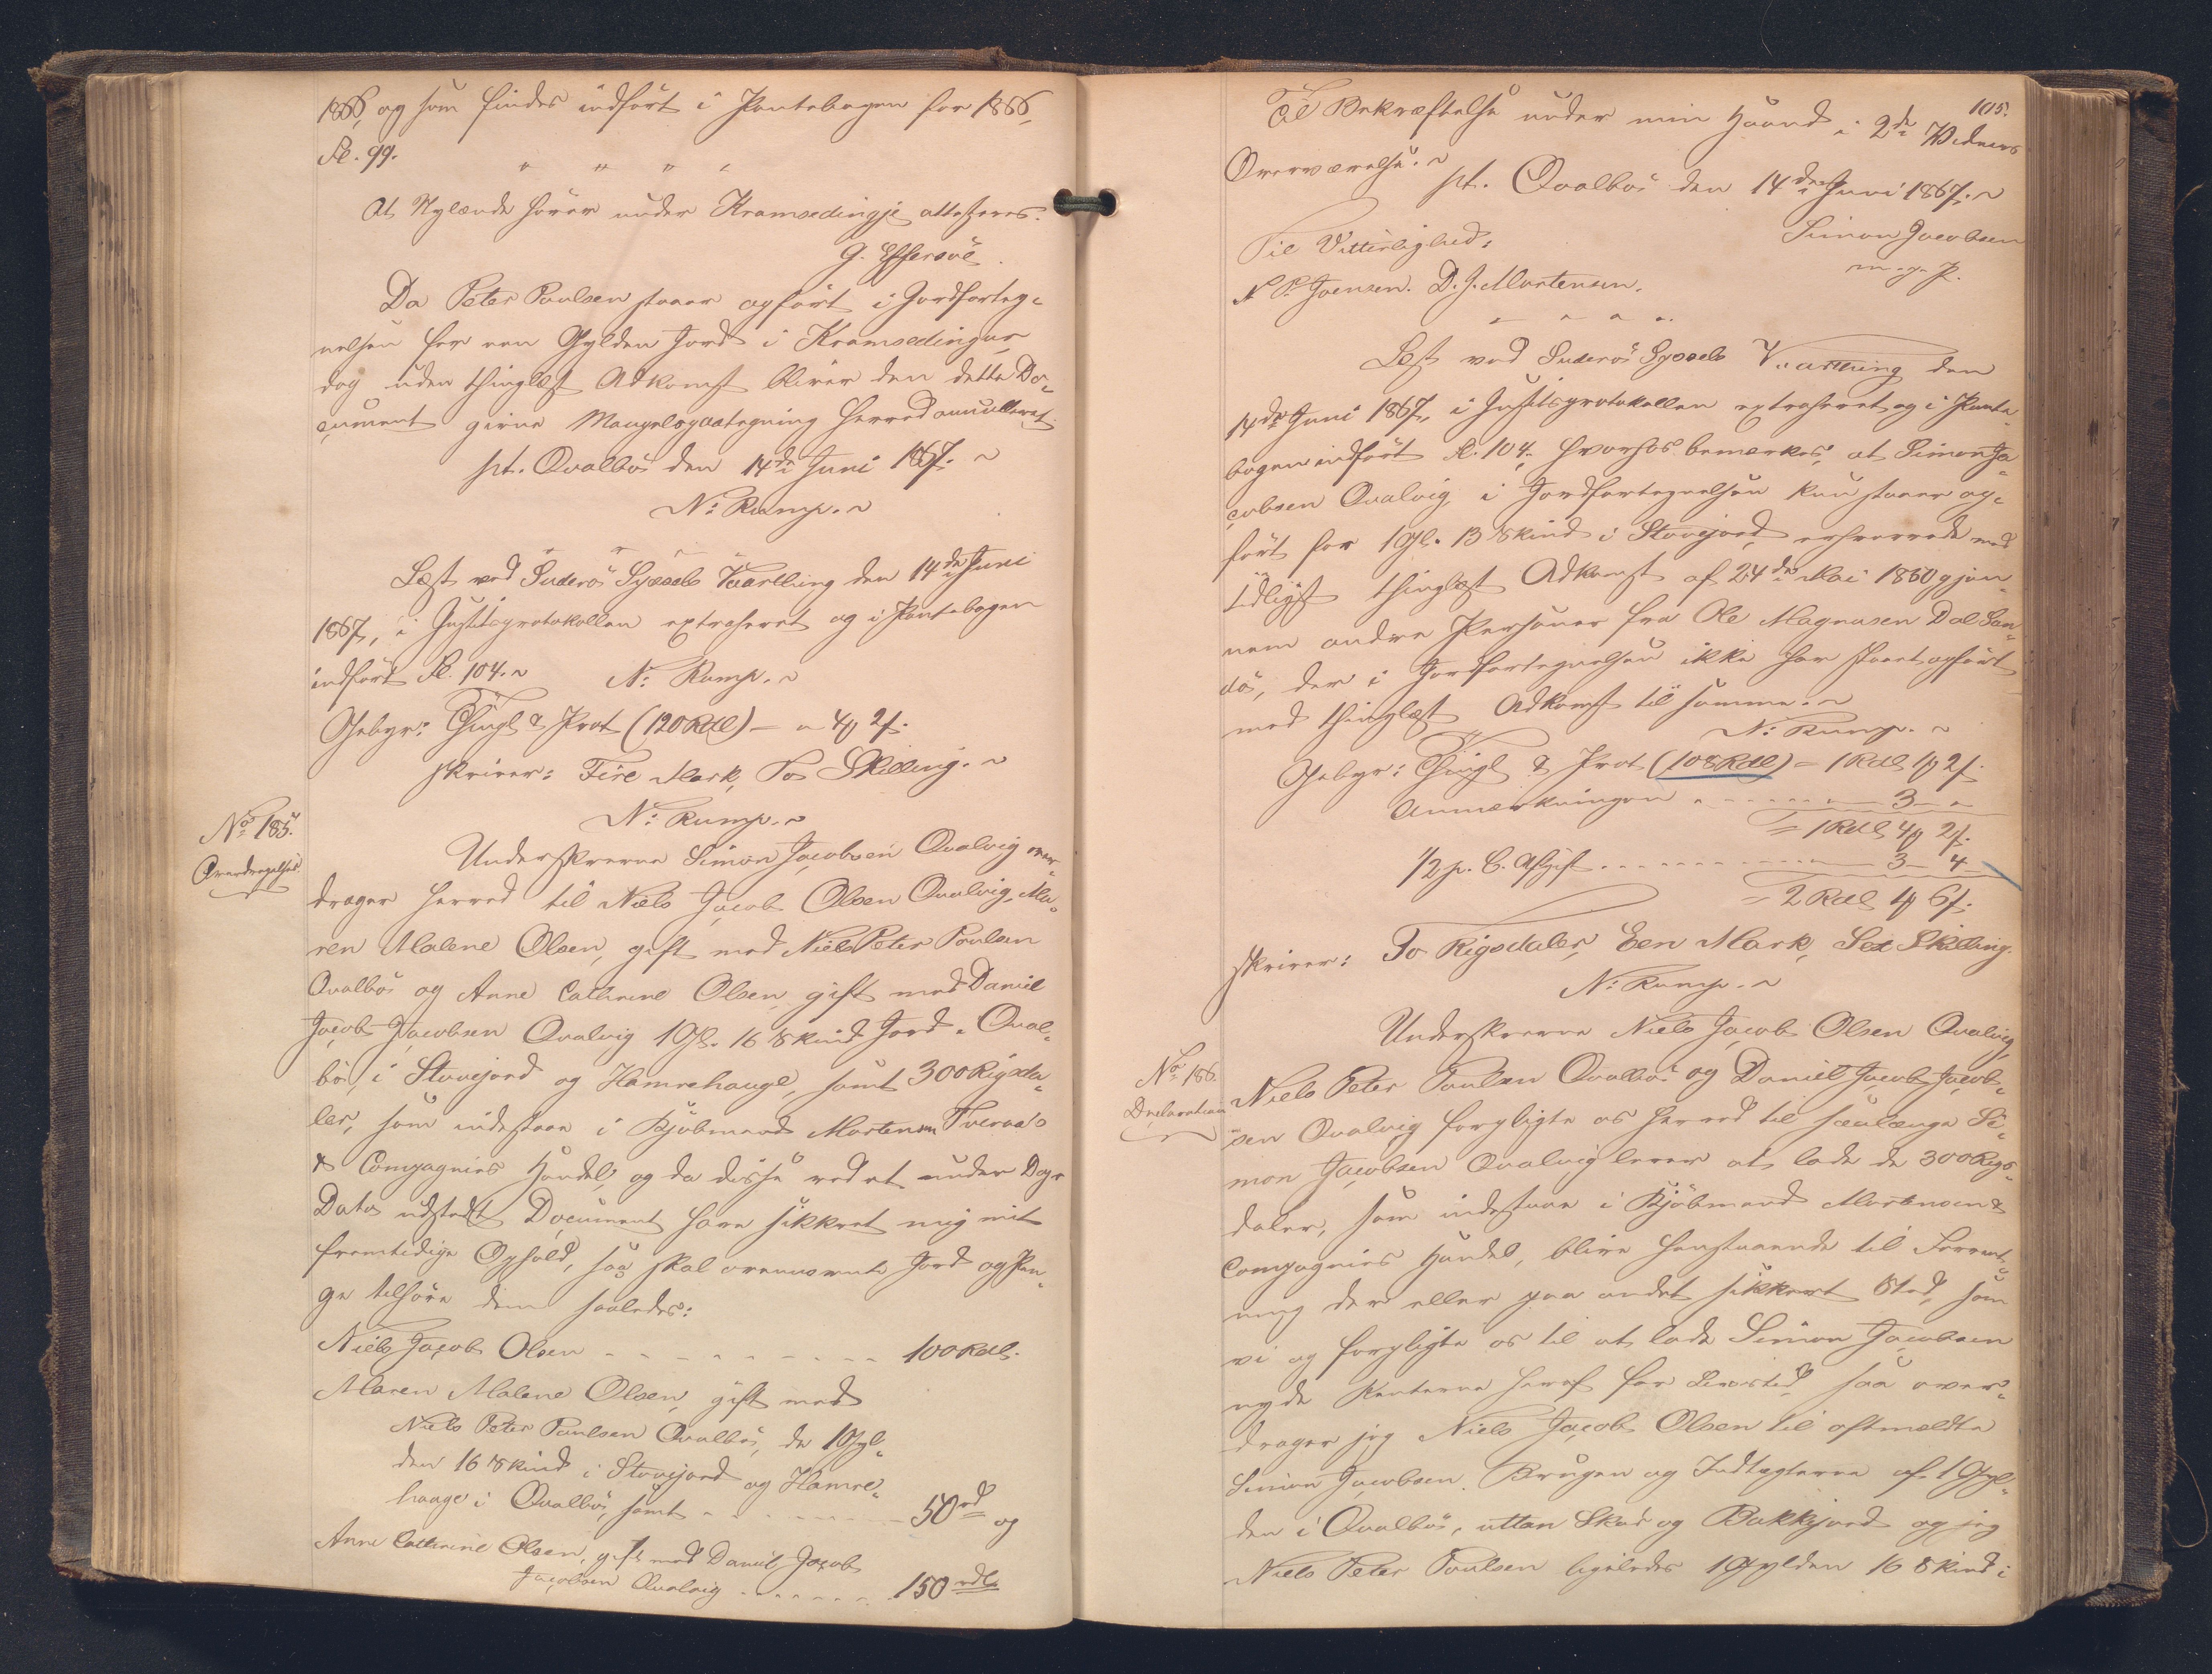 1866, og som findes indført i Pantebogen for 1866,
Fl. 99.
At Nylænde hører under Kramsedingje attesteres.
G. Effersøe.
Da Peter Poulsen staaer opført i Jordforteg-
nelsen for een Gylden Jord i Kramsedingur
dog uden thinglæst Adkomst bliver den dette Do-
cument givne Mangelspaategning herved annulleret.
pt. Qvalbö den 14de Juni 1867.
N: Rump.
Læst ved Suderö Sysels Vaarthing den 14de Juni
1867, i Justitsprotokollen extraheret og i Pantebogen
indført Fl. 104. N: Rump.
Gebyr: Thingl. & Prot (120 Rdl) = " 4 ꝥ 2 ſ.
skriver: Fire Mark, To Skilling.
N: Rump.
No 185.
Overdragelses
Underskrevne Simon Jacobsen Qvalvig over-
drager herved til Niels Jacob Olsen Qvalvig, Ma-
ren Malene Olsen, gift med Niels Peter Poulsen
Qvalbö og Anne Cathrine Olsen, gift med Daniel
Jacob Jacobsen Qvalvig 1 Gl. 16 Skind Jord i Qval-
bö, i Stovejord og Hamrehauge, samt 300 Rigsda-
ler, som indestaae i Kjöbmand Mortensen Tveraa
& Compagnies Handel, og da disse ved et under Dags
Dato udstedt Document have sikkret mig mit
fremtidige Ophold, saa skal ovennævnte Jord og Pen-
ge tilhøre dem saaledes:
Niels Jacob Olsen - - - - - - - - - - 100 Rdl.
Maren Malene Olsen, gift med
Niels Peter Poulsen Qvalbö, de 1 Gyl-
den 16 Skind i Stovejord og Hamre-
hauge i Qvalbö, samt - - - - - - - 50 rd og
Anne Cathrine Olsen, gift med Daniel Jacob
Jacobsen Qvalvig - - - - - - - 150 rdl.
105.
Til Bekræftelse under min Haand i 2de Vidners
Overværelse.
pt. Qvalbö den 14de Juni 1867.
Simon Jacobsen
m. g. P.
Til Vitterlighed:
N. P. Joensen. D. J. Mortensen.
Læst ved Suderö Sysels Vaarthing den
14de Juni 1867, i Justitsprotokollen extraheret og i Pante-
bogen indført Fl. 104, hvorhos bemærkes, at Simon Ja-
cobsen Qvalvig, i Jordfortegnelsen kun staaer op-
ført for 1 Gl. 13 Skind i Stovejord, erhvervede med
tidligst thinglæst Adkomst af 24de Mai 1860 gjen-
nem andre Personer fra Ole Magnusen Dal San-
dö, der i Jordfortegnelsen ikke har staaet opført
med thinglæst Adkomst til samme.
N: Rump.
Gebyr: Thingl & Prot (108 Rdl) = 1 Rdl 1 ꝥ 2 ſ.
Anmærkningen - - - - - - - 3 - "
= 1 Rdl 4 ꝥ 2 ſ.
1/2 p. C. Afgift - - - - - - - - 3 - 4
= 2 Rdl 1 ꝥ 6 ſ.
skriver: To Rigsdaler, Een Mark, Sex Skilling.
N: Rump.
No 186.
Declaration
Underskrevne Niels Jacob Olsen Qvalvig,
Niels Peter Poulsen Qvalbö og Daniel Jacob Jacob-
sen Qvalvig forpligte os herved til saalænge Si-
mon Jacobsen Qvalvig lever at lade de 300 Rigs-
daler, som indestaae i Kjöbmand Mortensen &
Compagnies Handel, blive henstaaende til Forrent-
ning der eller paa andet sikkert Sted, som
vi og forpligte os til at lade Simon Jacobsen
nyde Renterne heraf for Livstid, saa over-
drager jeg Niels Jacob Olsen til oftmeldte
Simon Jacobsen Brugen og Indtægterne af 1 Gyl-
den i Qvalbö, uttan Skar og Bakkjord og jeg
Niels Peter Poulsen ligeledes 1 Gylden 16 Skind i